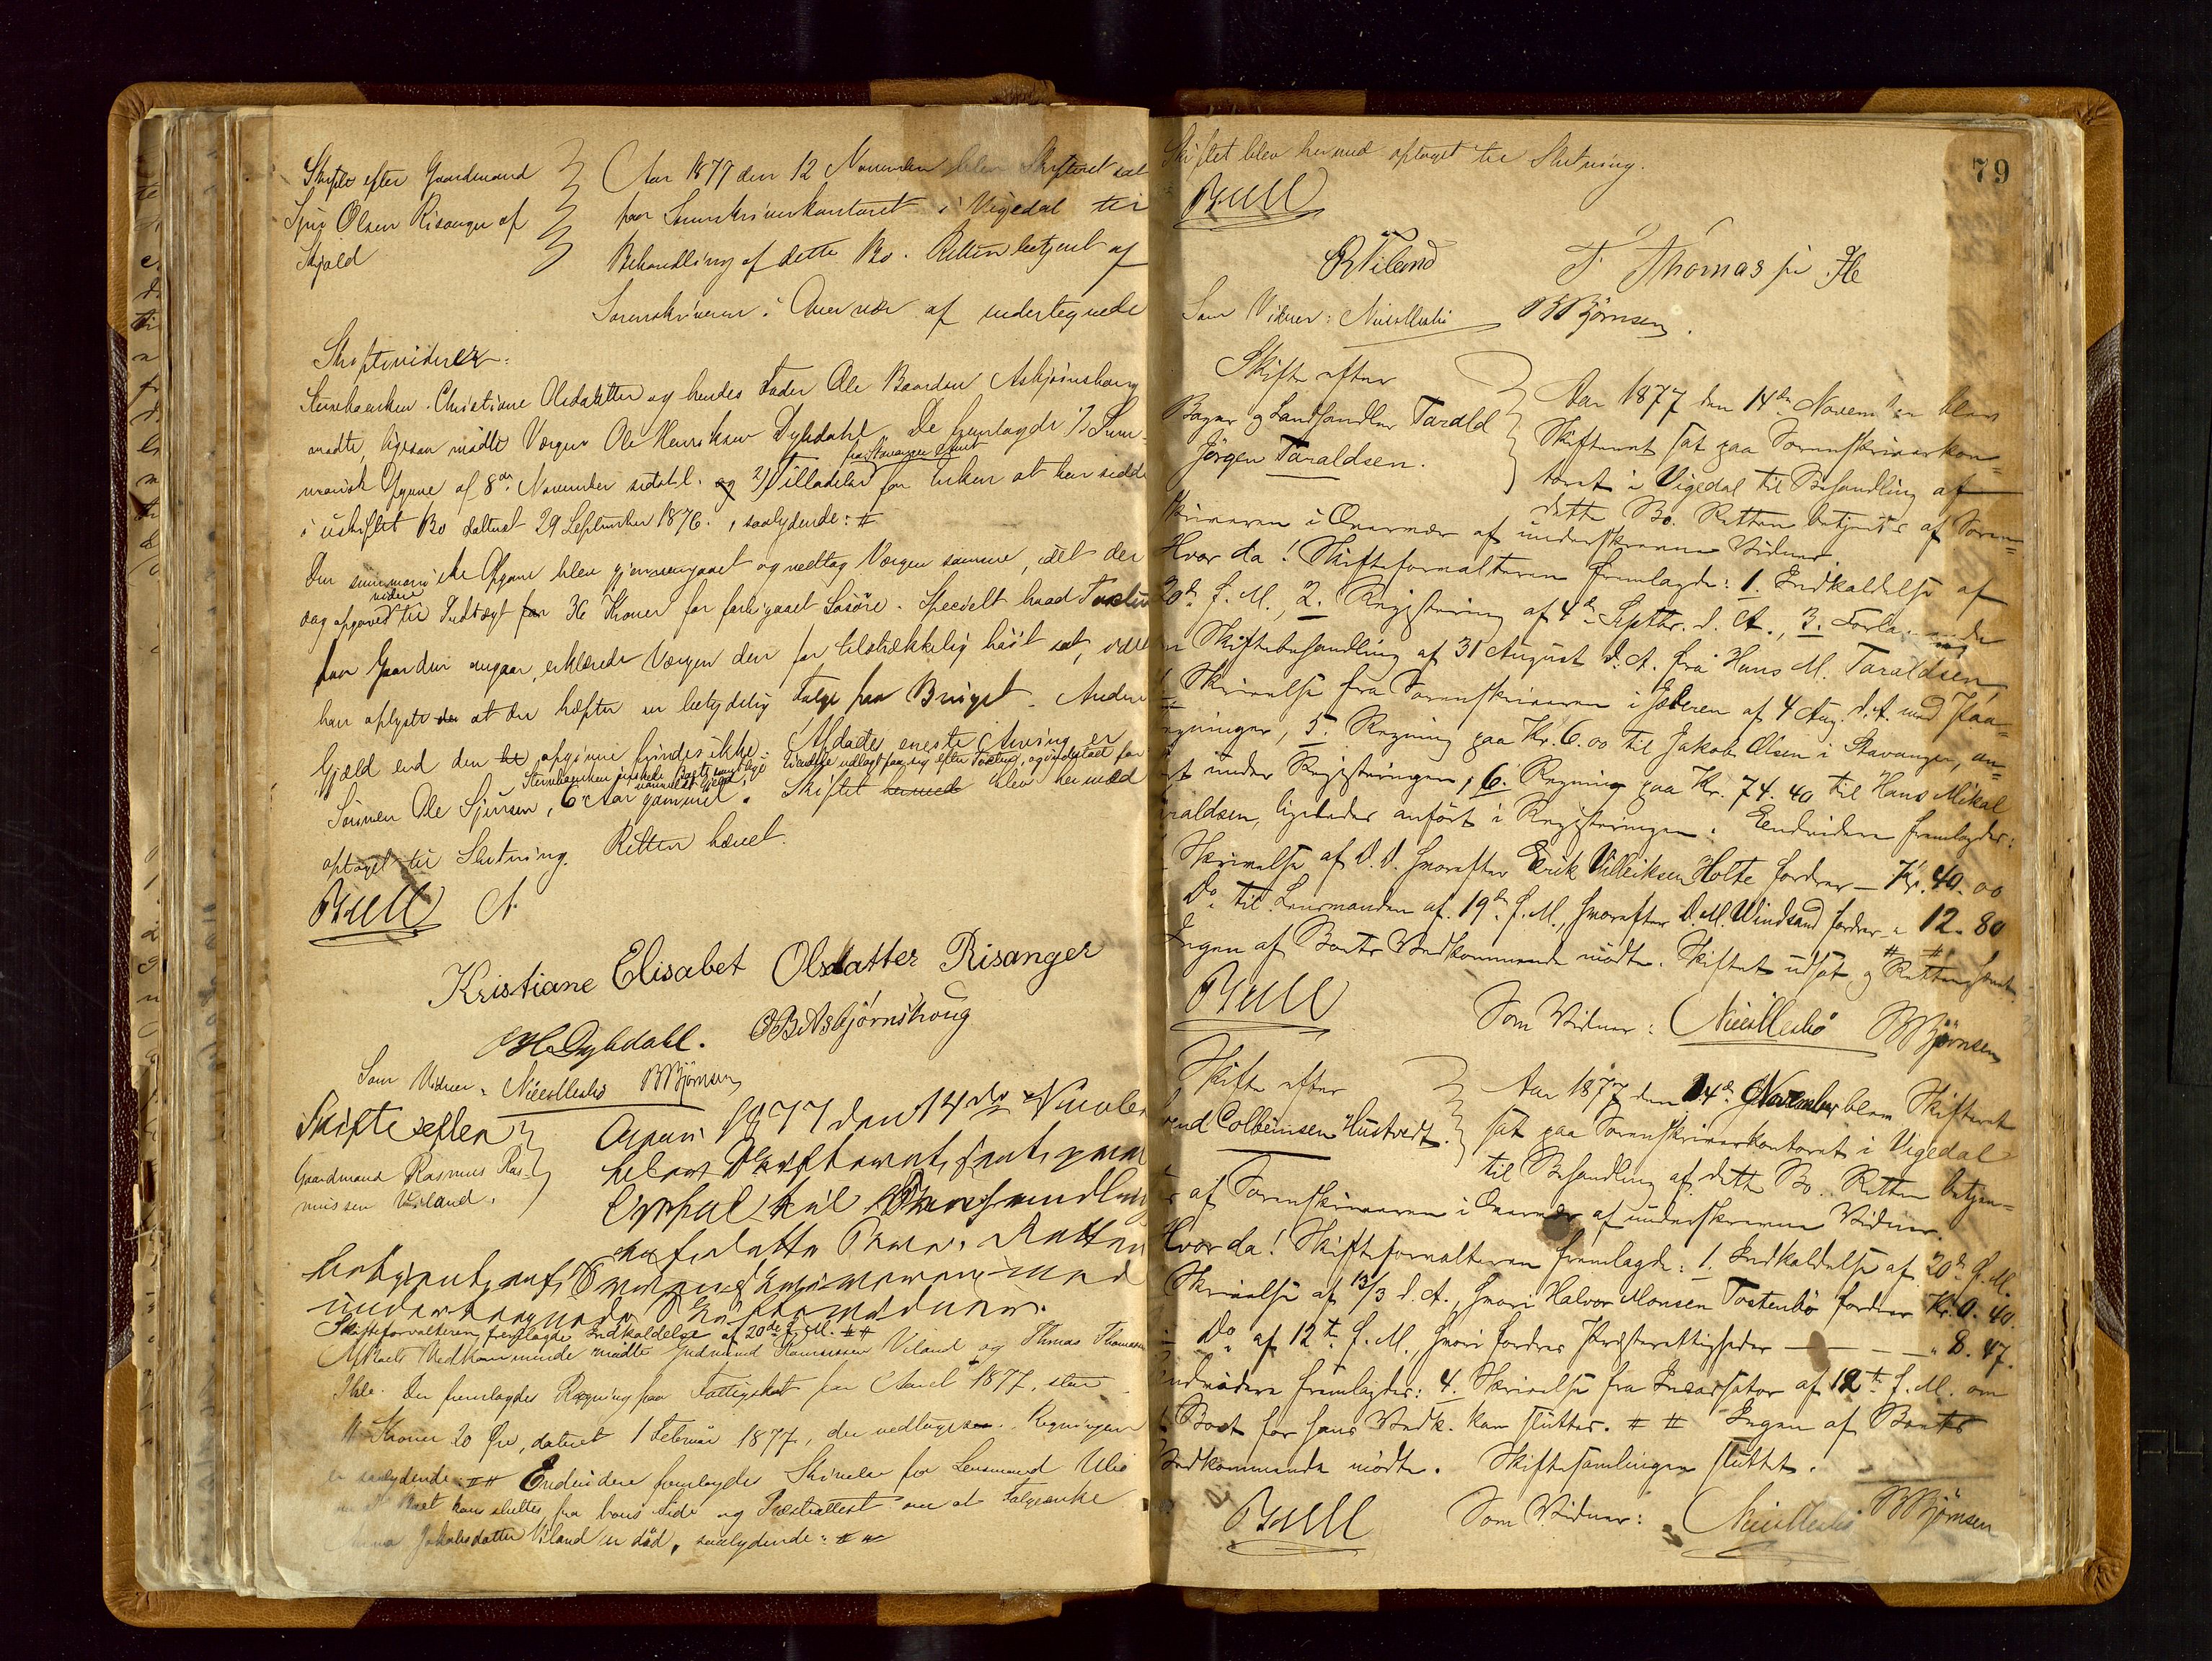 Skifte efter Gaardmand
Sjur Olsen Risanger af
Skjold
Aar 1877 den 12 November blev Skifteret sat
paa Sorenskriverkontoret i Vigedal til
Behandling af dette Bo. Retten betjent af
Sorenskriveren i Overvær af undertegnede
Skiftevidner:
Christiane Olsdatter og hendes Fader Ole Baardsen Asbjørnshoug
mødte, ligesaa mødte Værgen Ole Henriksen Dybdahl. De fremlagde 1) Sum-
marisk Opgave af 8de November sidstl. og 2) Tilladelse fra Stavanger Amt for Enken at hen sidde
i uskiftet Bo dateret 29 September 1876, saalydende: #
Den summariske Opgave blev gjennemgaaet og vedtog Værgen samme, idet der
dog opgaves videre til Indtægt 36 Kroner for Løsøre. Specielt hvad Taxten
paa Gaarden angaar, erklærede Værgen den for tilstrækkelig høit sat,
han oplyste at der hefter en betydelig Følge paa Bruget. Anden
Gjæld end den opgivne findes ikke. Afdødes eneste Arving er
Sønnen Ole Sjursen, 6 Aar gammel. Skiftet blev hermed
optaget til Slutning. Retten hævet.
Bull
Kristiane Elisabet Olsdatter Risanger
OH Dybdahl. OB Asbjørnshoug
Som Vidner: BBjørnsen
Skifte efter
Gaardmand Rasmus Ras-
mussen Viland.
Aar 1877 den 14de
blev Skifteret sat paa
til Behandling
af dette Bo. Retten
betjent af Sorenskriveren med
undertegnede Skiftevidner.
Skifteforvalteren fremlagde Indkaldelse af 20de f. M. ##
Af Boets Vedkommende mødte Gudmund Rasmussen Viland og Thomas Thomassen
Ihle. Der fremlagdes Regning paa Fattigskat for Aaret 1877, stor
11 Kroner 20 Øre, dateret 1 Februar 1877, der vedtoges. Regningen
er saalydende: ## Endvidere fremlagdes Skrivelse fra Lensmand
at Boet kan sluttes fra hans Side og Præsteattest om at Følgeenke
Anna Jakobsdatter Viland er død, saalydende: #
79
Skiftet blev hermed optaget til Slutning.
Bull
Thomas
Som Vidner: BBjørnsen.
Skifte efter
Bager og Landhandler Tarald
Jörgen Taraldsen.
Aar 1877 den 14de November blev
Skifteret sat paa Sorenskriverkon=
toret i Vigedal til Behandling af
dette Bo. Retten betjentes af Soren=
skriveren i Overvær af underskrevne Vidner.
Hvor da! Skifteforvalteren fremlagde: 1. Indkaldelse af
20de f. M., 2. Registrering af 4de Septbr. d. A., 3.
Skiftebehandling af 31 August d. A. fra Hans M. Taraldsen,
Skrivelse fra Sorenskriveren i Jæderen af 4 Aug. d. A. med Paa=
tegninger, 5. Regning paa Kr. 6.00 til Jakob Olsen i Stavanger, an=
ført under Registreringen, 6. Regning paa Kr. 74.40 til Hans Mikal
Taraldsen, ligeledes anført i Registreringen. Endvidere fremlagdes:
Skrivelse af D. D. hvorefter Eerik Villeiksen Holte fordrer — Kr. 40.00
Do til Lensmanden af 19de f. M., hvorefter D. M. Windsand fordrer — " 12.80
Ingen af Boets Vedkommende mødte. Skiftet udsat og Retten hævet.
Bull
Som Vidner: BBjørnsen
Skifte efter
Colbeinsen Hustvedt.
Aar 1877 den 14de November blev Skifteret
sat paa Sorenskriverkontoret i Vigedal
til Behandling af dette Bo. Retten betjen=
tes af Sorenskriveren i Overvær af underskrevne Vidner.
Hvor da! Skifteforvalteren fremlagde: 1. Indkaldelse af 20de f. M.
Skrivelse af 13/3 d. A., hvori Halvor Monsen Tostenbø fordrer Kr. 0.40.
Do af 12te f. M., hvori fordres Præsterettigheder — — — " 8.47.
Endvidere fremlagdes: 4. Skrivelse fra Incassator af 12te f. M. om
at Boet for hans Vedk. kan sluttes. # # Ingen af Boets
Vedkommende mødte. Skiftesamlingen sluttet.
Bull
Som Vidner: BBjørnsen